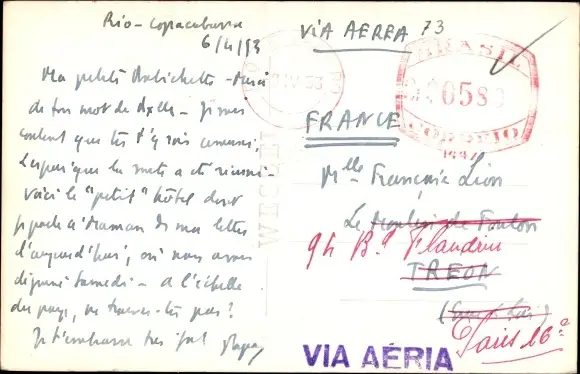 Rio-Copacabana
6/4/53
Ma petite Bibichette - Merci
de ton mot de Axelle - Je suis
content que tu t'y sois amusée,
J'espère que la
Voici le "petit" hôtel dont
je parle à Maman dans ma lettre
d'aujourd'hui, où nous avons
déjeuné samedi - à l'échelle
du pays, ne trouves-tu pas?
Je t'embrasse très fort Papa
VIA AEREA 73
BRASIL
058
CORREIO
FRANCE
Mlle Françoise Léon
Le Moulin de
TREON
(Eure & Loir)
94 Bd Flandrin
Paris 16e
VIA AÉRIA